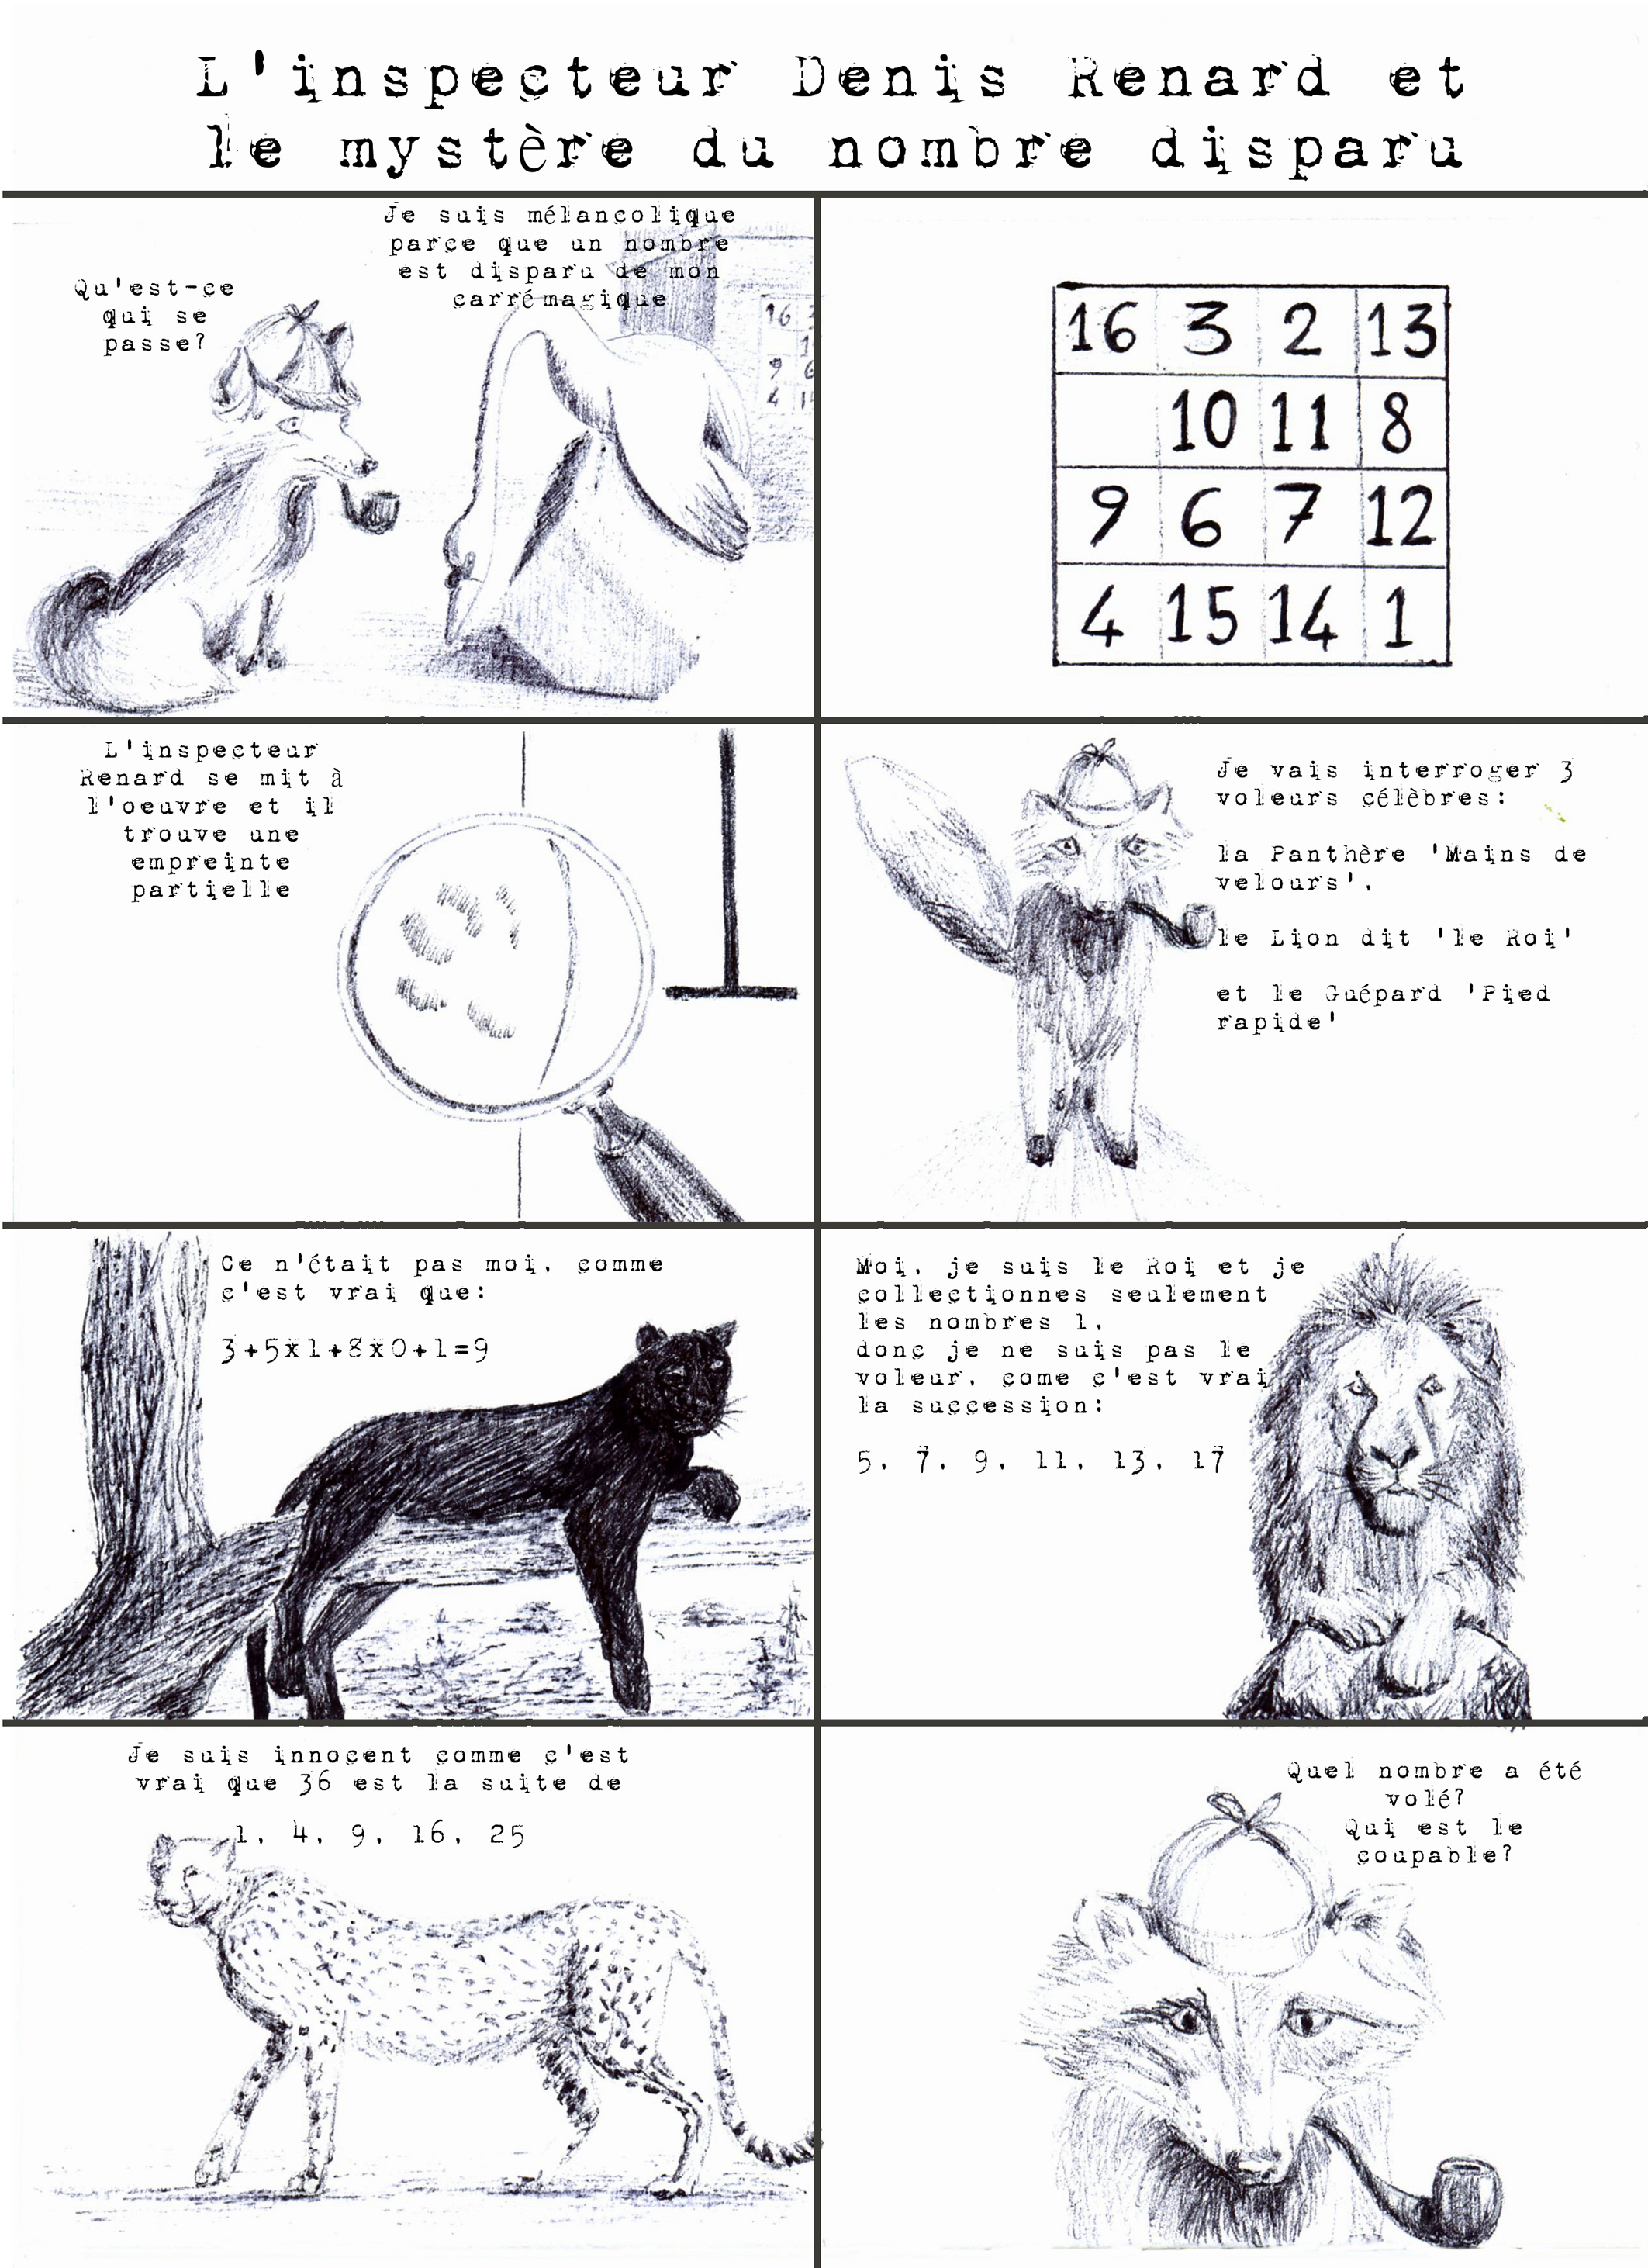 L'inspecteur Denis Renard et
le mystère du nombre disparu
Qu'est-ce
qui se
passe?
Je suis mélancolique
parce que un nombre
est disparu de mon
carré magique
16 3
1
9 6
4 1
16 3 2 13
10 11 8
9 6 7 12
4 15 14 1
L'inspecteur
Renard se mit à
l'oeuvre et il
trouve une
empreinte
partielle
Je vais interroger 3
voleurs célèbres:
la Panthère 'Mains de
velours',
le Lion dit 'le Roi'
et le Guépard 'Pied
rapide'
Ce n'était pas moi, comme
c'est vrai que:
3+5x1+8x0+1=9
Moi, je suis le Roi et je
collectionnes seulement
les nombres 1,
donc je ne suis pas le
voleur, come c'est vrai
la succession:
5, 7, 9, 11, 13, 17
Je suis innocent comme c'est
vrai que 36 est la suite de
1, 4, 9, 16, 25
Quel nombre a été
volé?
Qui est le
coupable?